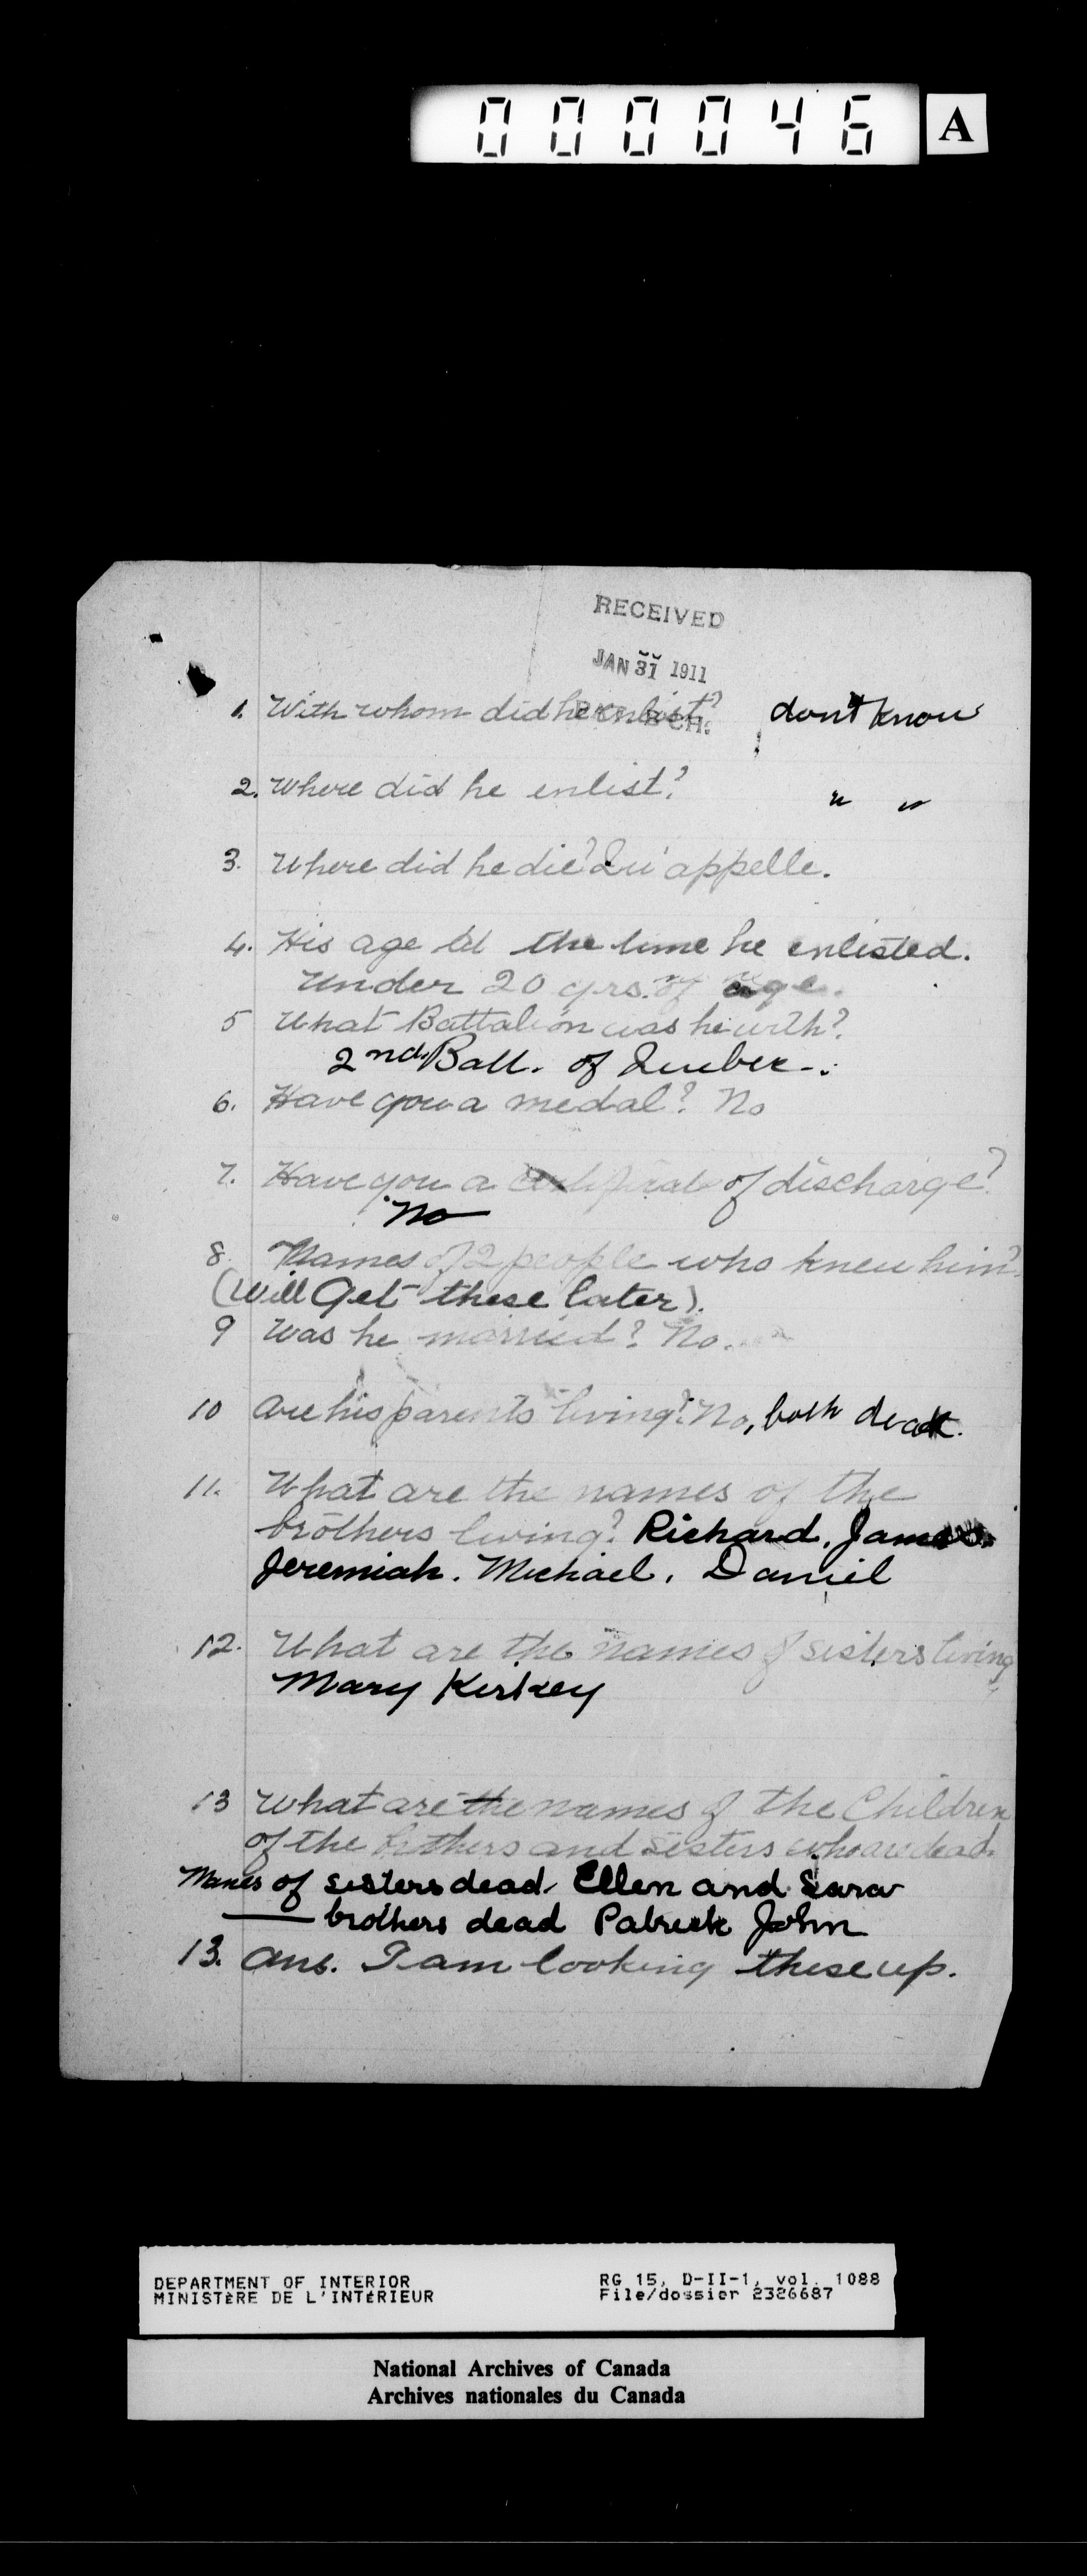 000046 A
RECEIVED
JAN 31 1911
1. With whom did he enlist? dont know
2. Where did he enlist? " "
3. Where did he die? Qu'appelle.
4. His age at the time he enlisted.
Under 20 yrs. of age.
5 What Battalion was he with?
2nd. Batt. of Quebec.
6. Have you a medal? No
7. Have you a certificate of discharge?
No
8. Names of 2 people who knew him?
(Will Get these later).
9 Was he married? No.
10 Are his parents living? No, both dead.
11. What are the names of the
brothers living? Richard, James.
Jeremiah. Michael. Daniel
12. What are the names of sisters living
Mary Kirkey
13 What are the names of the Children
of the brothers and sisters who are dead.
Names of sisters dead. Ellen and Sara
— brothers dead Patrick John
13. Ans. I am looking these up.
DEPARTMENT OF INTERIOR RG 15, D-II-1, vol. 1088
MINISTÈRE DE L'INTÉRIEUR File/dossier 2326687
National Archives of Canada
Archives nationales du Canada